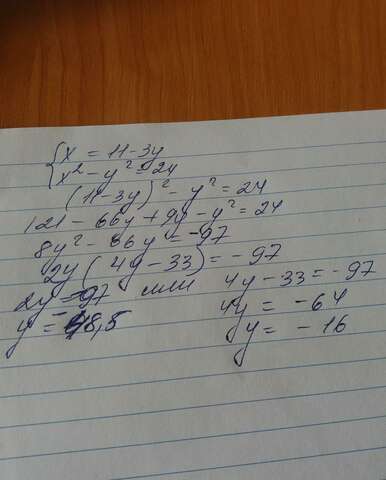 x = 11-3y
x² - y² = 24
(11-3y)² - y² = 24
121 - 66y + 9y - y² = 24
8y² - 66y = -97
2y(4y-33) = -97
2y = -97 или 4y-33 = -97
y = -48,5 4y = -64
y = -16